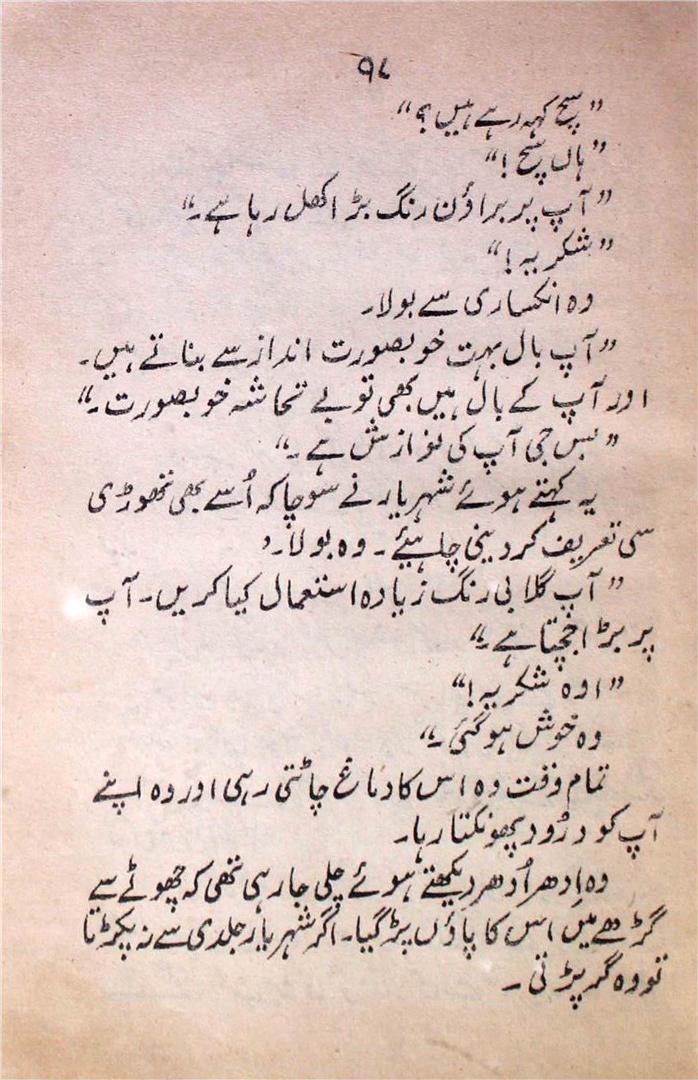 ۹۸
”سچ کہہ رہے ہیں؟“
”ہاں سچ!“
”آپ پر براؤن رنگ بڑا کھل رہا ہے۔“
”شکریہ!“
وہ انکساری سے بولا۔
”آپ بال بہت خوبصورت انداز سے بناتے ہیں۔
اور آپ کے بال ہیں بھی تو بے تحاشہ خوبصورت۔“
”بس جی آپ کی نوازش ہے۔“
یہ کہتے ہوئے شہریار نے سوچا کہ اُسے بھی تھوڑی
سی تعریف کر دینی چاہیئے۔ وہ بولا۔
”آپ گلابی رنگ زیادہ استعمال کیا کریں۔ آپ
پر بڑا جچتا ہے۔“
”اوہ شکریہ!“
وہ خوش ہو گئی۔“
تمام وقت وہ اس کا دماغ چاٹتی رہی اور وہ اپنے
آپ کو درُود پھونکتا رہا۔
وہ اِدھر اُدھر دیکھتے ہوئے چلی جا رہی تھی کہ چھوٹے سے
گڑھے میں اس کا پاؤں پڑ گیا۔ اگر شہریار جلدی سے نہ پکڑتا
تو وہ گر پڑتی۔